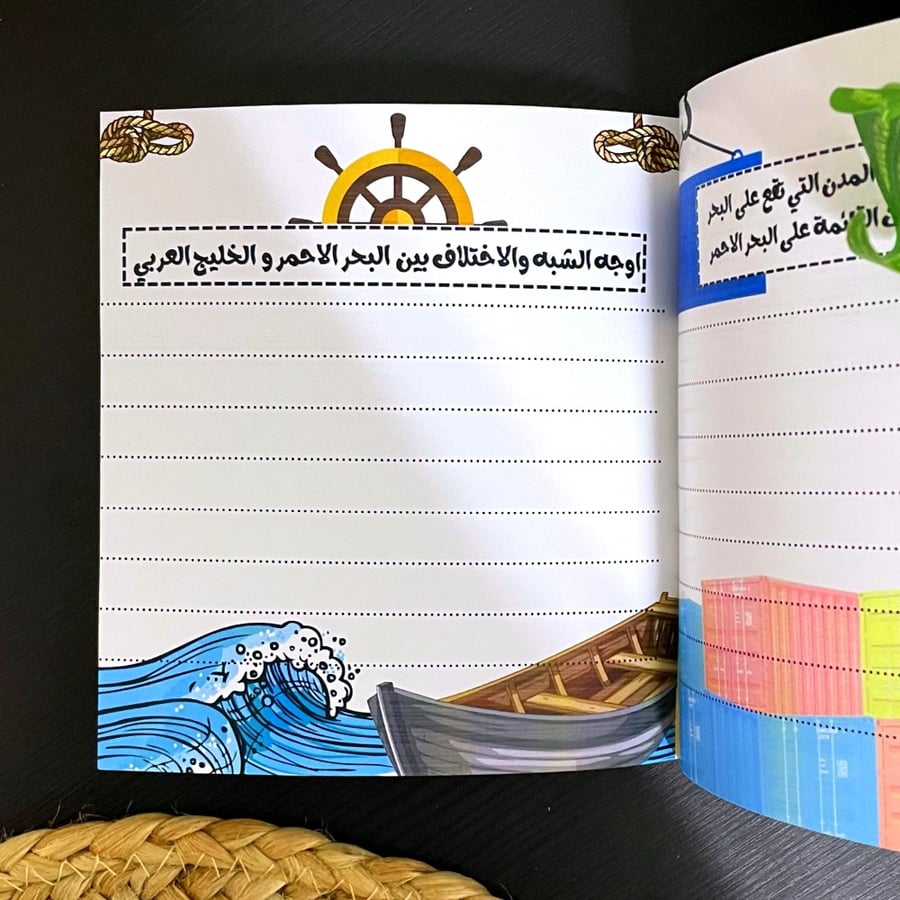 اوجه الشبه والاختلاف بين البحر الاحمر و الخليج العربي
المدن التي تقع على البحر
على البحر الاحمر